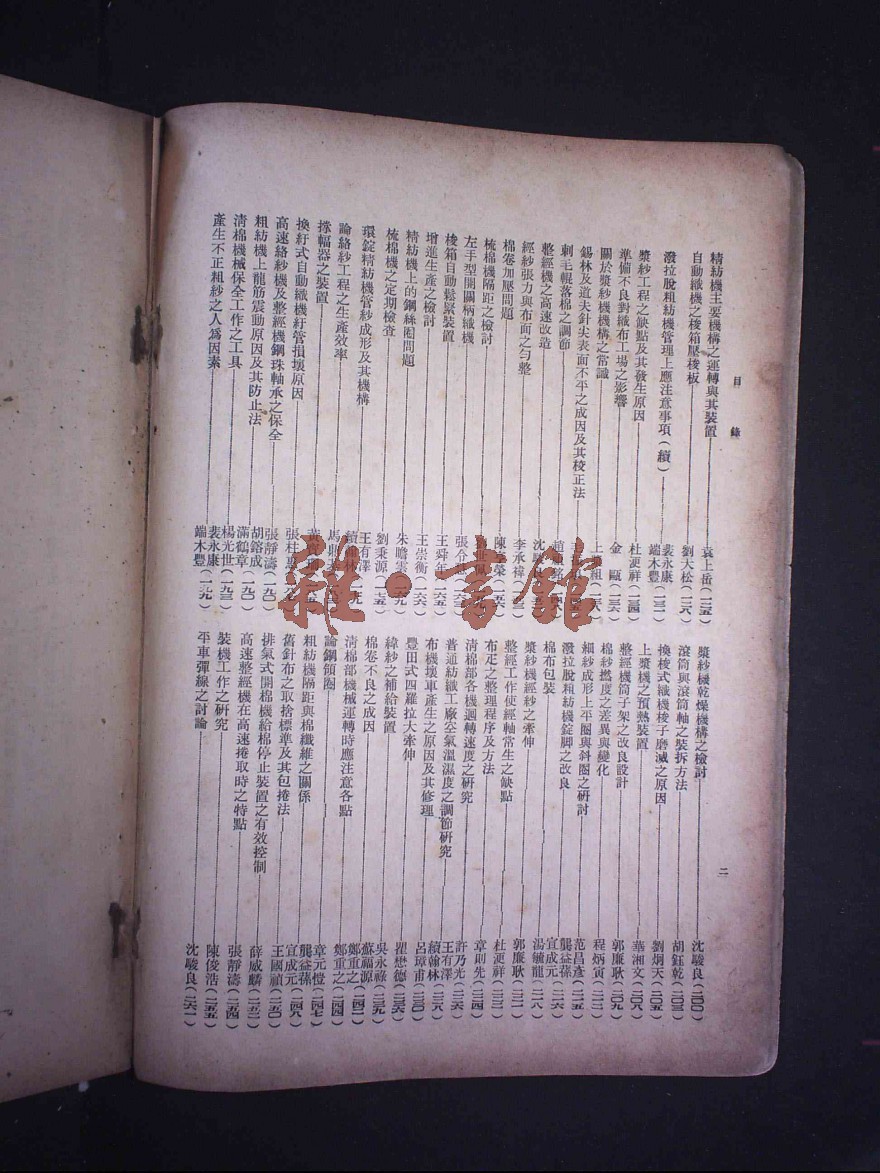 目錄
二
精紡機主要機構之運轉與其裝置 袁上岳(一二五)
自動織機之梭箱壓梭板 劉大松(一二八)
潑拉脫粗紡機管理上應注意事項(續) 裴永康 端木豐(一三二)
漿紗工程之缺點及其發生原因 杜浭祥(一三四)
準備不良對織布工場之影響 金甌(一三六)
關於漿紗機機構之常識 上 祖
錫林及道夫針尖表面不平之成因及其校正法
刺毛輥落棉之調節
整經機之高速改造 沈駿良
經紗張力與布面之勻整 李承禕
棉卷加壓問題 陳 榮
梳棉機隔距之檢討
左手型開關柄織機 張
梭箱自動鬆緊裝置 王舜年
增進生產之檢討 王崇衡(一六六)
精紡機上的鋼絲圈問題 朱瞻雲(一六九)
梳棉機之定期檢查 劉秉源(一七五)
環錠精紡機管紗成形及其機構 王有澤 續 林
論絡紗工程之生產效率 馬
撐幅器之裝置 黃
換紆式自動織機紆管損壞原因 張柱
高速絡紗機及整經機鋼珠軸承之保全 張靜濤(一九〇)
粗紡機上龍筋震動原因及其防止法 胡鎔成 滿鶴章(一九二)
清棉機械保全工作之工具 楊光世(一九三)
產生不正粗紗之人為因素 裴永康 端木豐(一九九)
漿紗機乾燥機構之檢討 沈駿良(二〇〇)
滾筒與滾筒軸之裝拆方法 胡鈺乾(二〇三)
換梭式織機梭子磨滅之原因 劉炳天(二〇五)
上漿機之預熱裝置 華湘文(二〇八)
整經機筒子架之改良設計 郭廉耿(二〇九)
棉紗撚度之差異與變化 程炳寅(二一二)
細紗成形上平圈與斜圈之研討 范昌彥(二一五)
潑拉脫粗紡機錠脚之改良 龔益蓀 宜成元(二一六)
棉布包裝 湯毓龍(二一八)
漿紗機經紗之牽伸 郭廉耿(二二一)
整經工作使經軸常生之缺點 杜浭祥(二二二)
布疋之整理程序及方法 章則先(二二四)
清棉部各機迴轉速度之研究 許乃光(二二六)
普通紡織工廠空氣溫濕度之調節研究 王有澤 續翰林(二二八)
布機壞車產生之原因及其修理 呂璋甫(二三〇)
豐田式四羅拉大牽伸 瞿懋德(二三六)
緯紗之補給裝置 吳永祿(二三九)
棉卷不良之成因 蘇福源 鄭重之(二四二)
清棉部機械運轉時應注意各點 鄭重之(二四四)
論鋼領圈 章元愷(二四七)
粗紡機隔距與棉纖維之關係 龔益蓀 宜成元(二四八)
舊針布之取捨標準及其包捲法 王國禎(二五〇)
排氣式開棉機給棉停止裝置之有效控制 薛威麟(二五二)
高速整經機在高速捲取時之特點 張靜濤(二五四)
裝機工作之研究 陳俊浩(二五五)
平車彈線之討論 沈駿良(二六一)
雜·書館